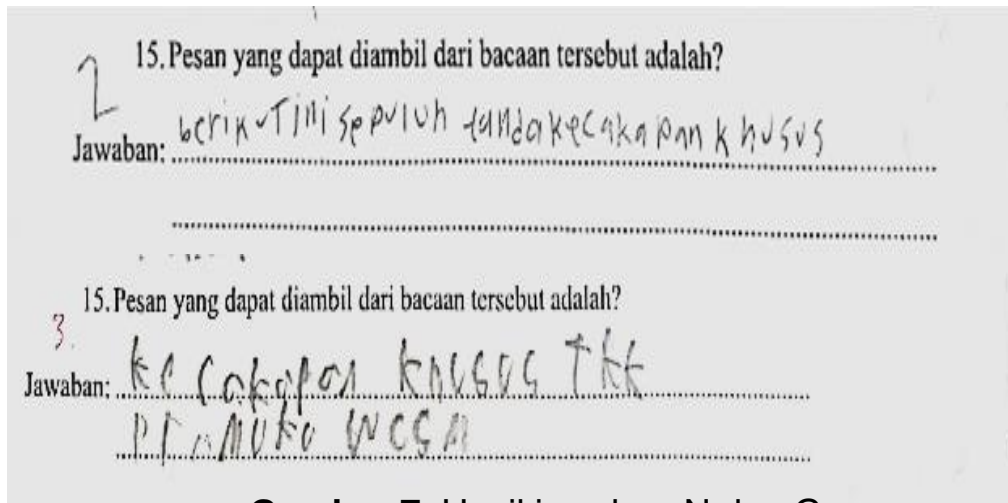 15. Pesan yang dapat diambil dari bacaan tersebut adalah?
2
Jawaban: berikut ini sepuluh tanda kecakapan khusus
15. Pesan yang dapat diambil dari bacaan tersebut adalah?
3.
Jawaban: ke cakapan khusus tkk